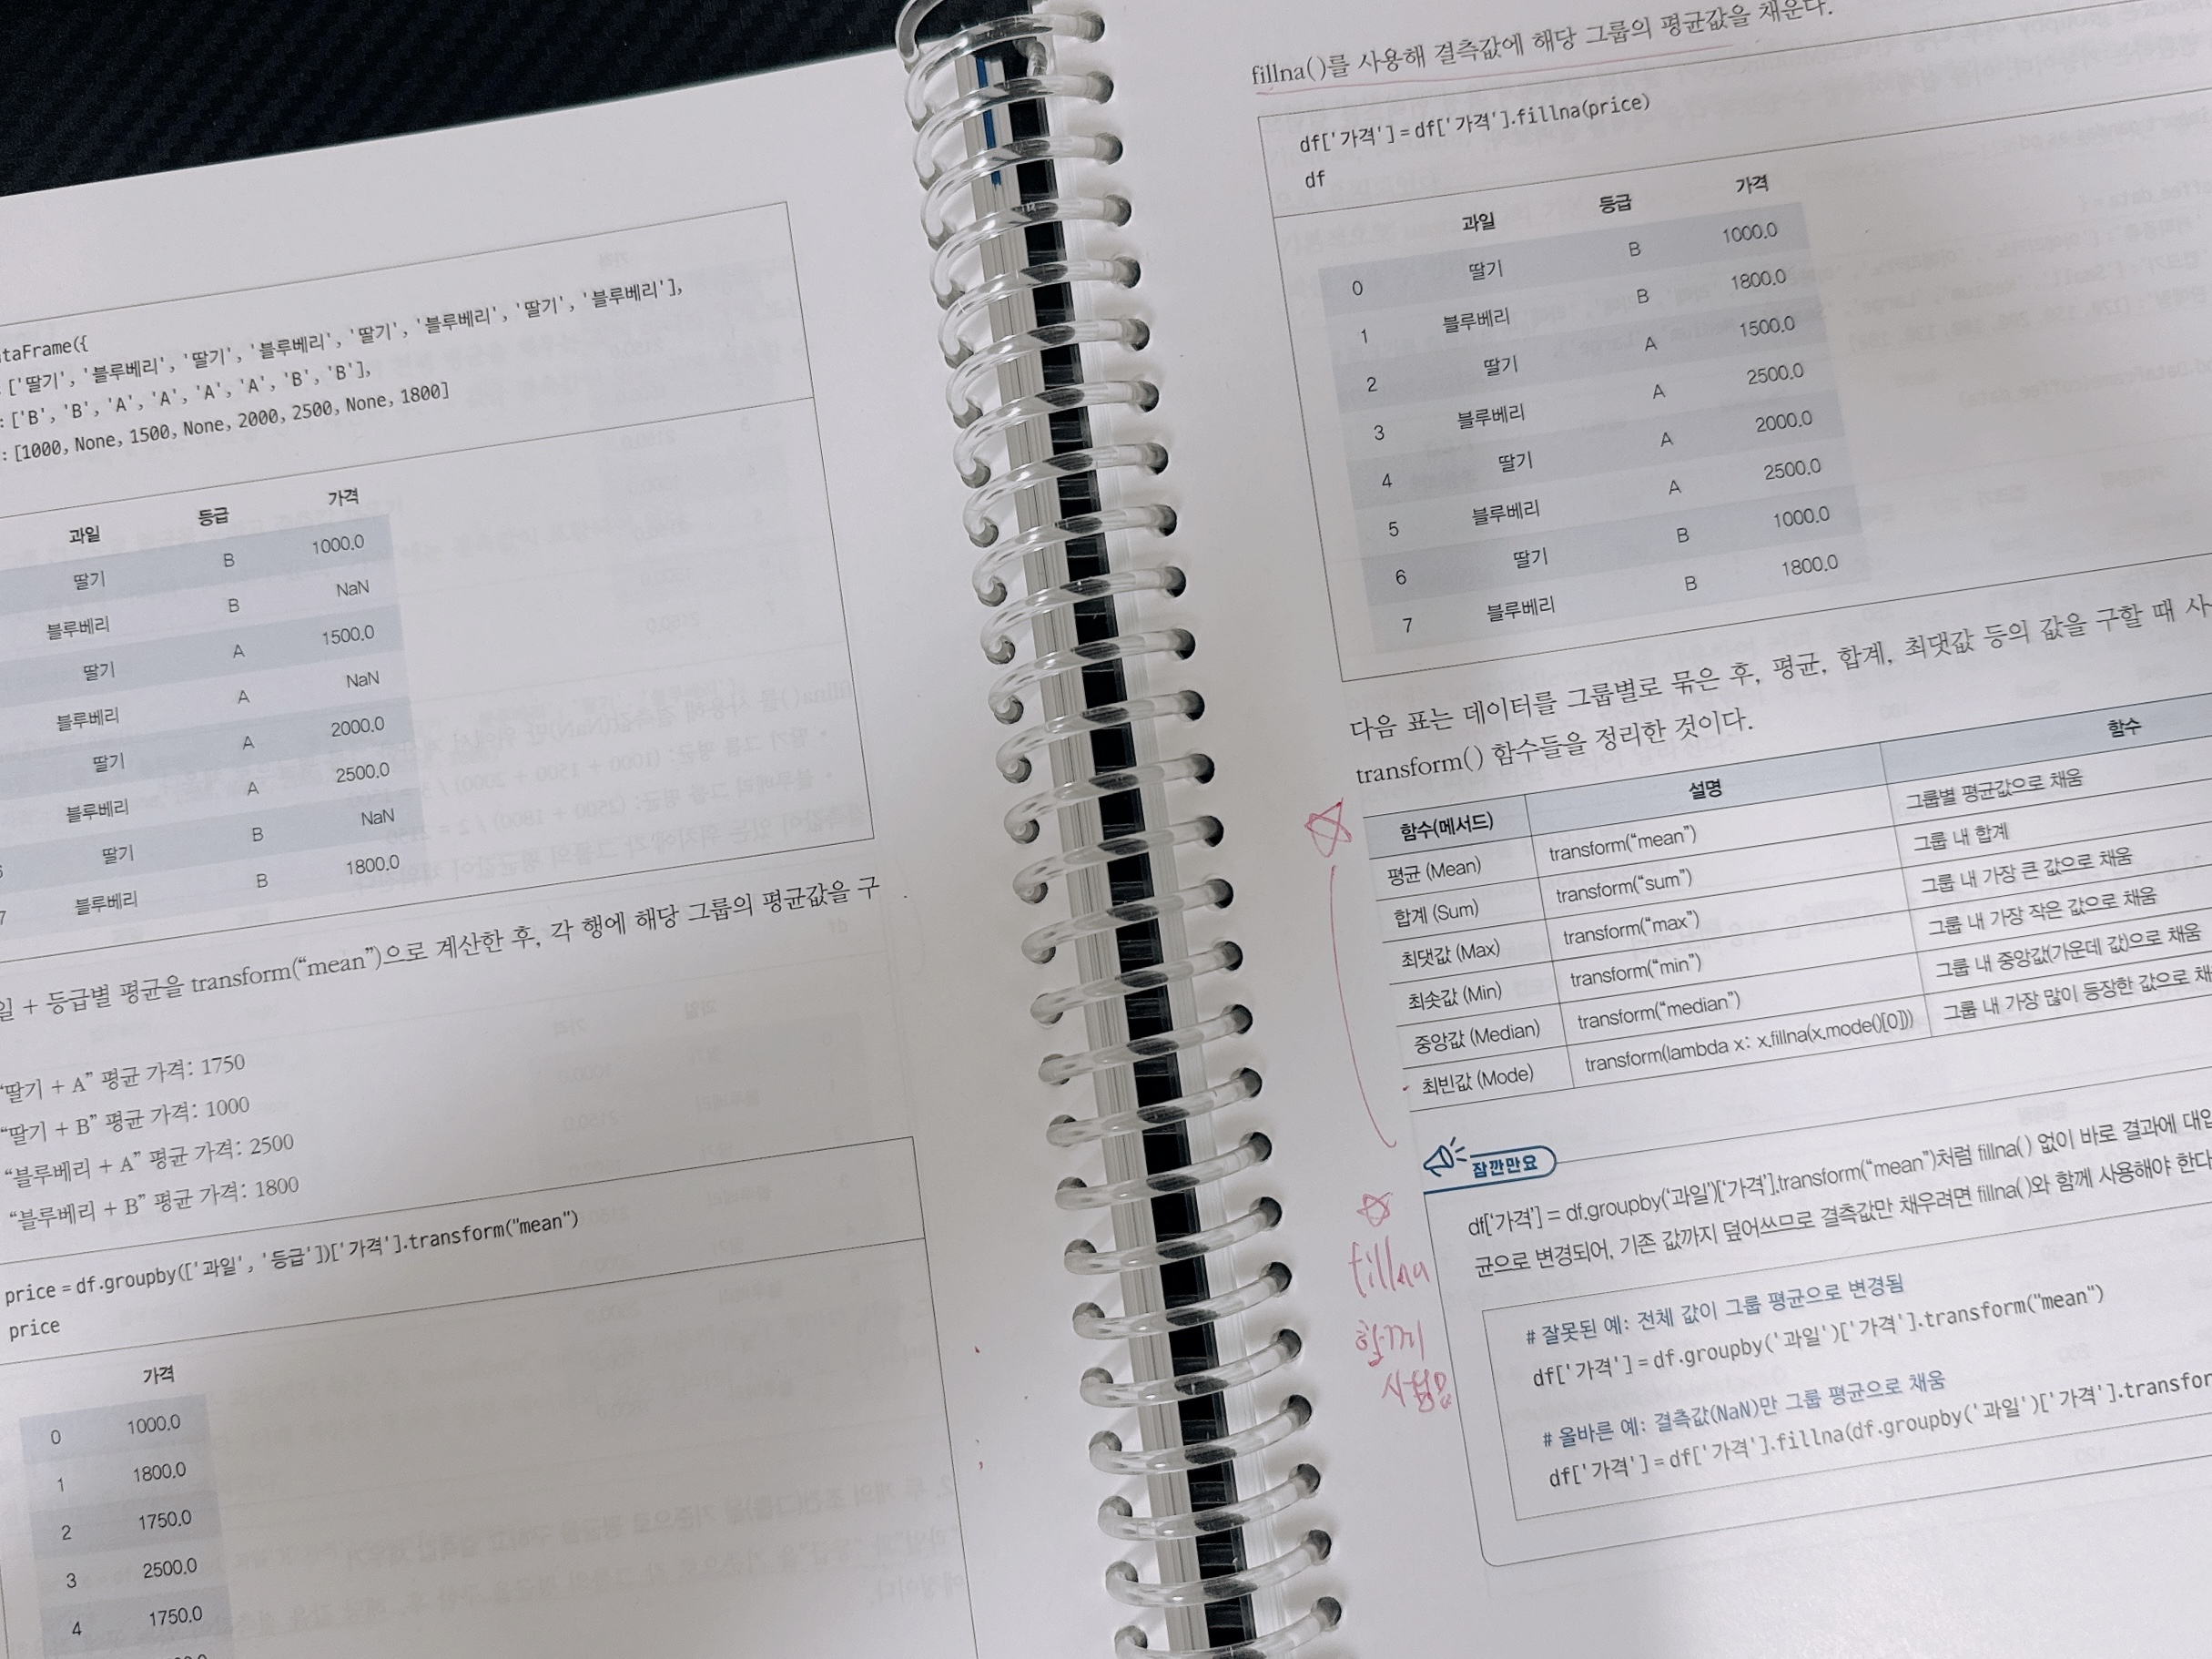 taFrame({
['딸기', '블루베리', '딸기', '블루베리', '딸기', '블루베리', '딸기', '블루베리'],
: ['B', 'B', 'A', 'A', 'A', 'A', 'B', 'B'],
: [1000, None, 1500, None, 2000, 2500, None, 1800]
과일 등급 가격
딸기 B 1000.0
블루베리 B NaN
딸기 A 1500.0
블루베리 A NaN
딸기 A 2000.0
블루베리 A 2500.0
6 딸기 B NaN
7 블루베리 B 1800.0
일 + 등급별 평균을 transform(“mean”)으로 계산한 후, 각 행에 해당 그룹의 평균값을 구
“딸기 + A” 평균 가격: 1750
“딸기 + B” 평균 가격: 1000
“블루베리 + A” 평균 가격: 2500
“블루베리 + B” 평균 가격: 1800
price = df.groupby(['과일', '등급'])['가격'].transform("mean")
price
가격
0 1000.0
1 1800.0
2 1750.0
3 2500.0
4 1750.0
fillna()를 사용해 결측값에 해당 그룹의 평균값을 채운다.
df['가격'] = df['가격'].fillna(price)
df
과일 등급 가격
0 딸기 B 1000.0
1 블루베리 B 1800.0
2 딸기 A 1500.0
3 블루베리 A 2500.0
4 딸기 A 2000.0
5 블루베리 A 2500.0
6 딸기 B 1000.0
7 블루베리 B 1800.0
다음 표는 데이터를 그룹별로 묶은 후, 평균, 합계, 최댓값 등의 값을 구할 때 사
transform() 함수들을 정리한 것이다.
함수(메서드) 설명 함수
평균 (Mean) transform(“mean”) 그룹별 평균값으로 채움
합계 (Sum) transform(“sum”) 그룹 내 합계
최댓값 (Max) transform(“max”) 그룹 내 가장 큰 값으로 채움
최솟값 (Min) transform(“min”) 그룹 내 가장 작은 값으로 채움
중앙값 (Median) transform(“median”) 그룹 내 중앙값(가운데 값)으로 채움
최빈값 (Mode) transform(lambda x: x.fillna(x.mode()[0])) 그룹 내 가장 많이 등장한 값으로 채
잠깐만요
df['가격'] = df.groupby('과일')['가격'].transform(“mean”)처럼 fillna() 없이 바로 결과에 대입
균으로 변경되어, 기존 값까지 덮어쓰므로 결측값만 채우려면 fillna()와 함께 사용해야 한다
# 잘못된 예: 전체 값이 그룹 평균으로 변경됨
df['가격'] = df.groupby('과일')['가격'].transform("mean")
# 올바른 예: 결측값(NaN)만 그룹 평균으로 채움
df['가격'] = df['가격'].fillna(df.groupby('과일')['가격'].transfor
fillna
함께